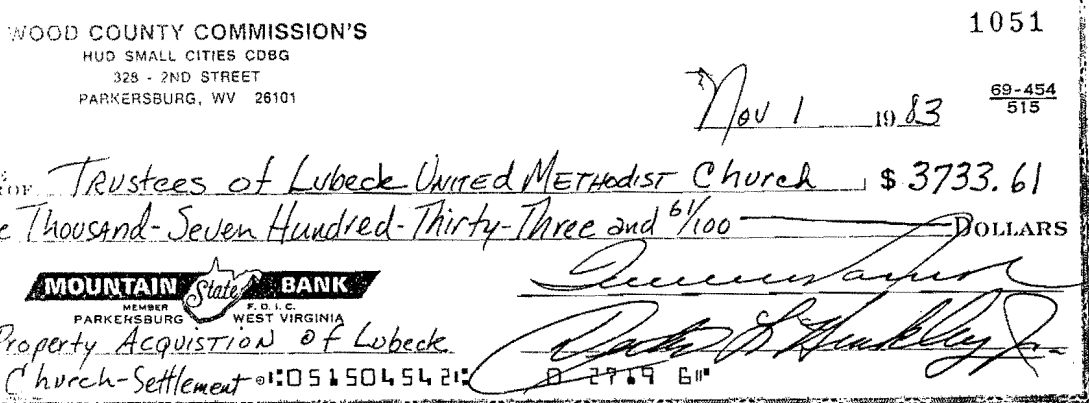 1051
WOOD COUNTY COMMISSION'S
HUD SMALL CITIES CDBG
328 - 2ND STREET
PARKERSBURG, WV 26101
Nov 1 19 83
69-454
515
OF Trustees of Lubeck United Methodist Church $ 3733.61
e Thousand-Seven Hundred-Thirty-Three and 61/100 DOLLARS
MOUNTAIN State BANK
MEMBER F.D.I.C.
PARKERSBURG WEST VIRGINIA
Property Acquistion of Lubeck
Church-Settlement ⑆051504542⑆ 0 2719 6⑈